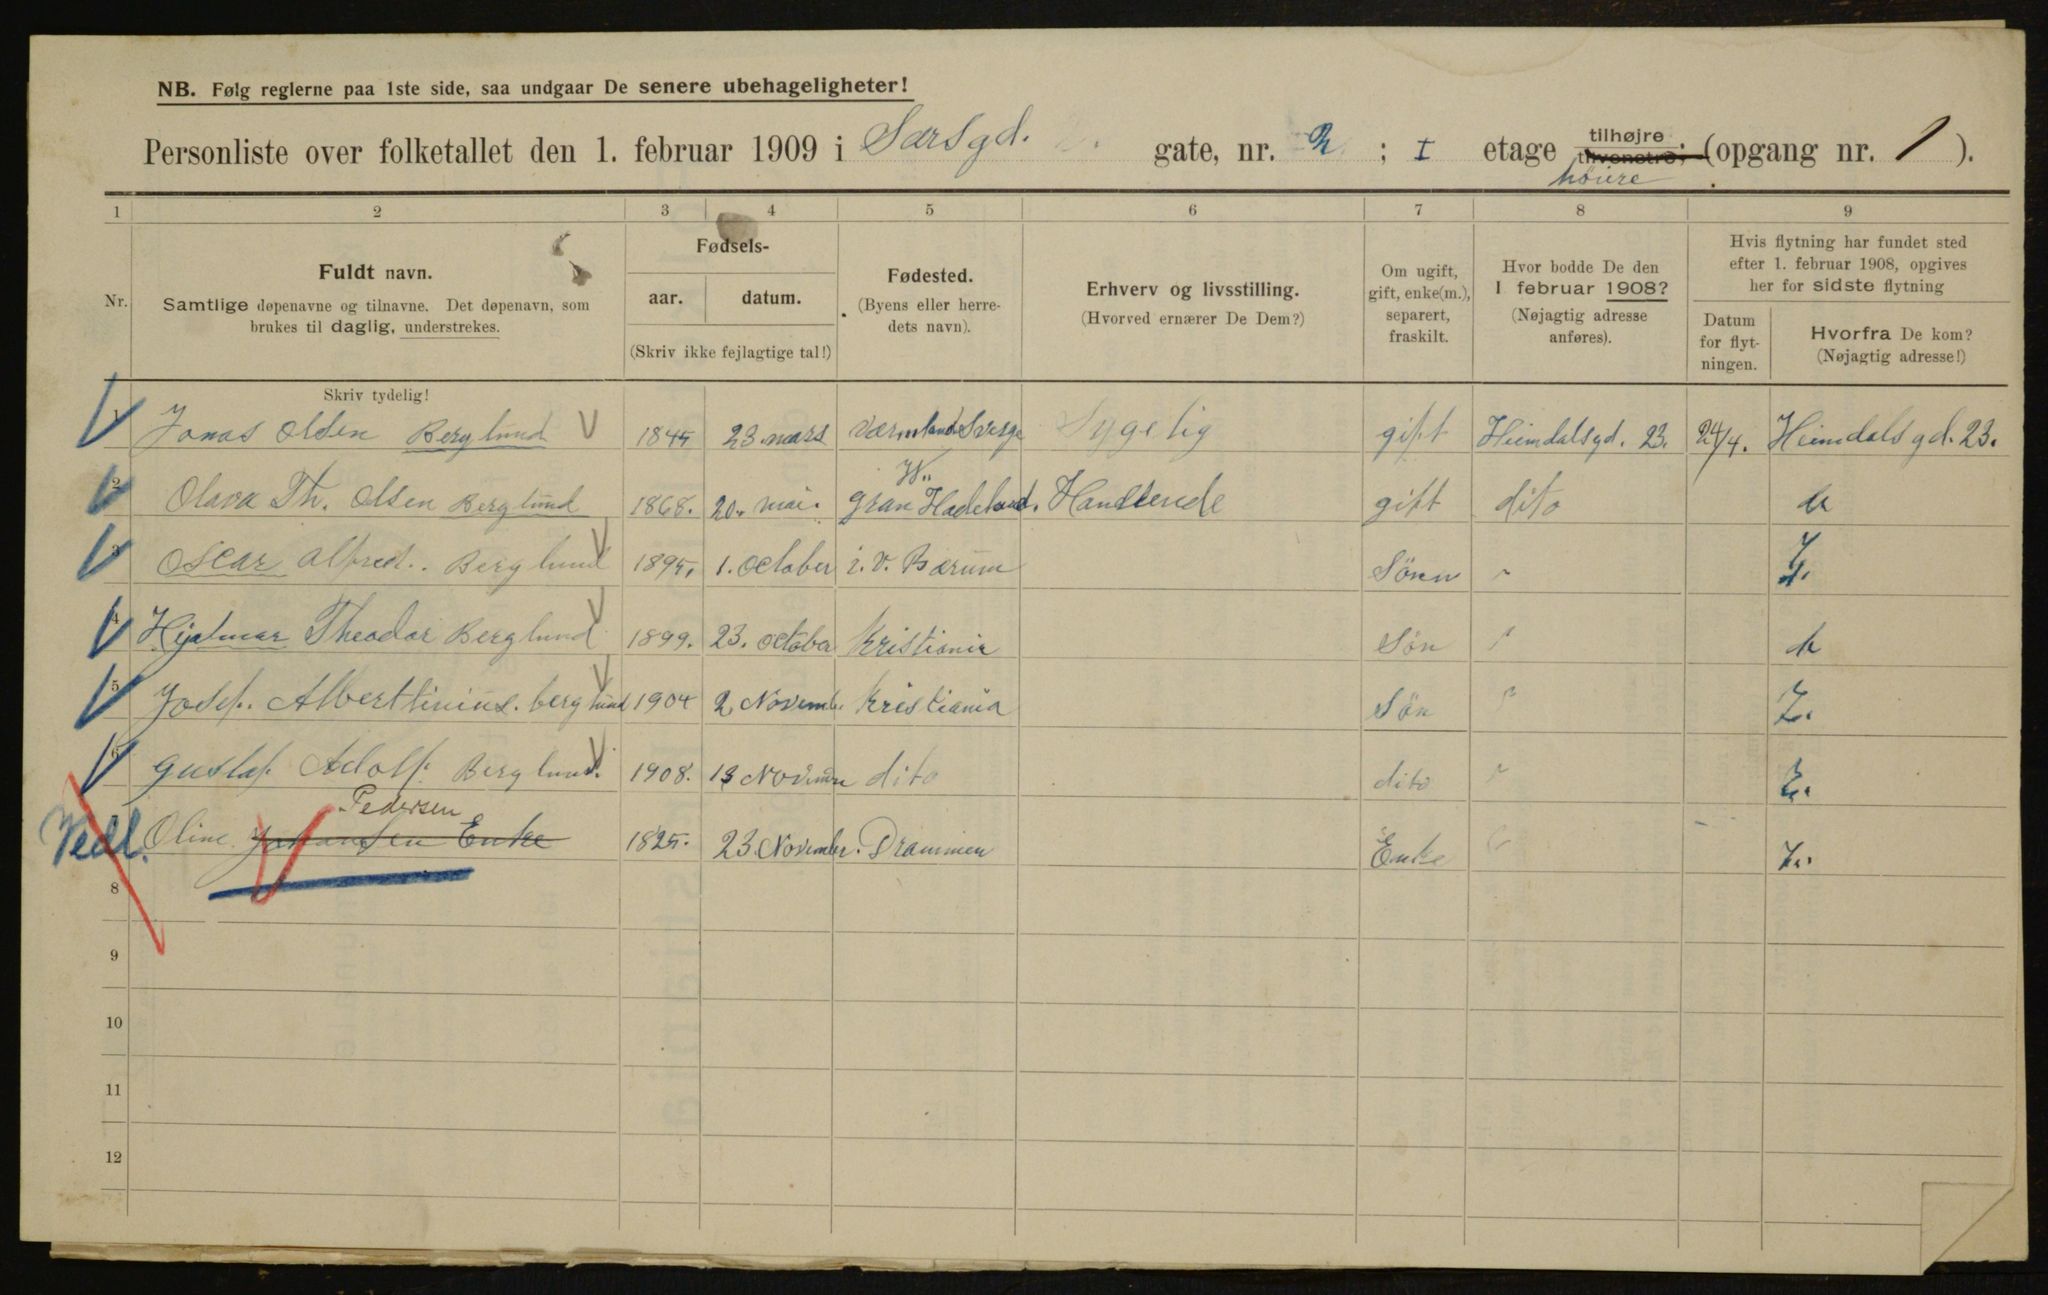 NB. Følg reglerne paa 1ste side, saa undgaar De senere ubehageligheter!
Personliste over folketallet den 1. februar 1909 i Sarsgd. gate, nr. 2 ; I etage tilhøjre tilvenstre; (opgang nr. 1 ).
höiere
1 2 3 4 5 6 7 8 9
Nr.
Fuldt navn.
Samtlige døpenavne og tilnavne. Det døpenavn, som
brukes til daglig, understrekes.
Fødsels-
aar. datum.
(Skriv ikke fejlagtige tal!)
Fødested.
(Byens eller herre-
dets navn).
Erhverv og livsstilling.
(Hvorved ernærer De Dem?)
Om ugift,
gift, enke(m.),
separert,
fraskilt.
Hvor bodde De den
1 februar 1908?
(Nøjagtig adresse
anføres).
Hvis flytning har fundet sted
efter 1. februar 1908, opgives
her for sidste flytning
Datum
for flyt-
ningen.
Hvorfra De kom?
(Nøjagtig adresse!)
Skriv tydelig!
1 Jonas Olsen Berglund 1845 23. mars Værmland Sverge Sygelig gift Heimdalsgd. 23. 24/4. Heimdalsgd. 23.
2 Olava Th. Olsen Berglund 1868. 20. mai. Gran Hadeland. gift dito
3 Oscar Alfred. Berglund 1895. 1. October i. V. Bærum Sönn "
4 Hjalmar Theodor Berglund 1899. 23. october Kristiania Sön "
5 Josef. Alberttinius. berglund 1904 2 Novemb. Kristiania Sön "
6 Gustaf. Adolf. Berglund. 1908. 13 dito dito "
Pedersen
Vedl. Oline Johansen Enke 1825. 23 November. Drammen Enke
8
9
10
11
12